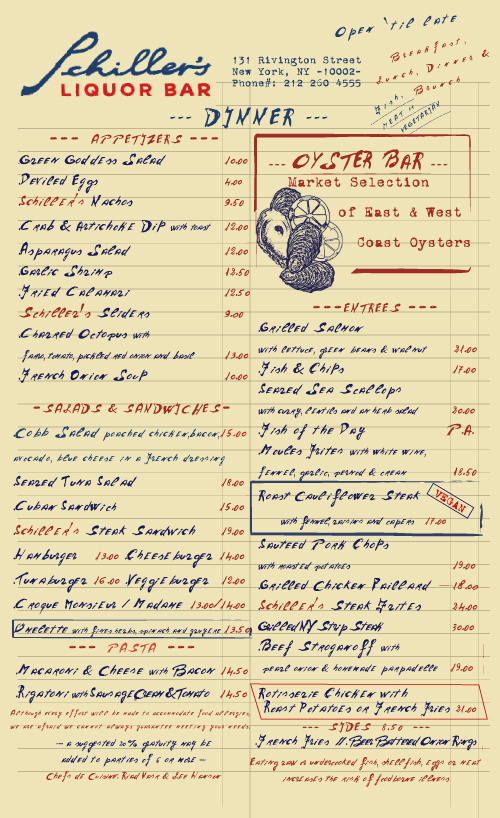 Schiller's
LIQUOR BAR
131 Rivington Street
New York, NY -10002-
Phone#: 212 260 4555
Open 'til late
Breakfast,
Lunch, Dinner &
Brunch
Fish,
MEAT or
VEGETARIAN
--- DINNER ---
--- APPETIZERS ---
Green Goddess Salad 10.00
Deviled Eggs 4.00
Schiller's Nachos 9.50
Crab & Artichoke Dip with toast 12.00
Asparagus Salad 12.00
Garlic Shrimp 13.50
Fried Calamari 12.50
Schiller's Sliders 9.00
Charred Octopus with
faro, tomato, pickled red onion and basil 13.00
French Onion Soup 10.00
- SALADS & SANDWICHES -
Cobb Salad poached chicken, bacon, 15.00
avocado, blue cheese in a French dressing
Seared Tuna Salad 18.00
Cuban Sandwich 15.00
Schiller's Steak Sandwich 19.00
Hamburger 13.00 Cheeseburger 14.00
Tunaburger 16.00 Veggieburger 12.00
Croque Monsieur / Madame 13.00/14.00
Omelette with fines herbs, spinach and gruyere 13.50
--- PASTA ---
Macaroni & Cheese with Bacon 14.50
Rigatoni with Sausage Cream & Tomato 14.50
Although every effort will be made to accomodate food allergies
we are afraid we cannot always guarantee meeting your needs.
- a suggested 20% gratuity may be
added to parties of 6 or more -
Chefs de Cuisine:
--- OYSTER BAR ---
Market Selection
of East & West
Coast Oysters
--- ENTREES ---
Grilled Salmon
with lettuce, green beans & walnut 21.00
Fish & Chips 17.00
Seared Sea Scallops
with curry, lentils and an herb salad 20.00
Fish of the Day P.A.
Moules Frites with white wine,
fennel, garlic, pernod & cream 18.50
Roast Cauliflower Steak VEGAN
with fennel, raisins and capers 17.00
Sauteed Pork Chops
with roasted potatoes 19.00
Grilled Chicken Paillard 18.00
Schiller's Steak Frites 24.00
Grilled NY Strip Steak 30.00
Beef Stroganoff with
pearl onion & homemade parpadelle 19.00
Rotisserie Chicken with
Roast Potatoes or French Fries 21.00
--- SIDES 8.50 ---
French Fries // Beer Battered Onion Rings
Eating raw or undercooked fish, shellfish, eggs or meat
increases the risk of foodborne illness